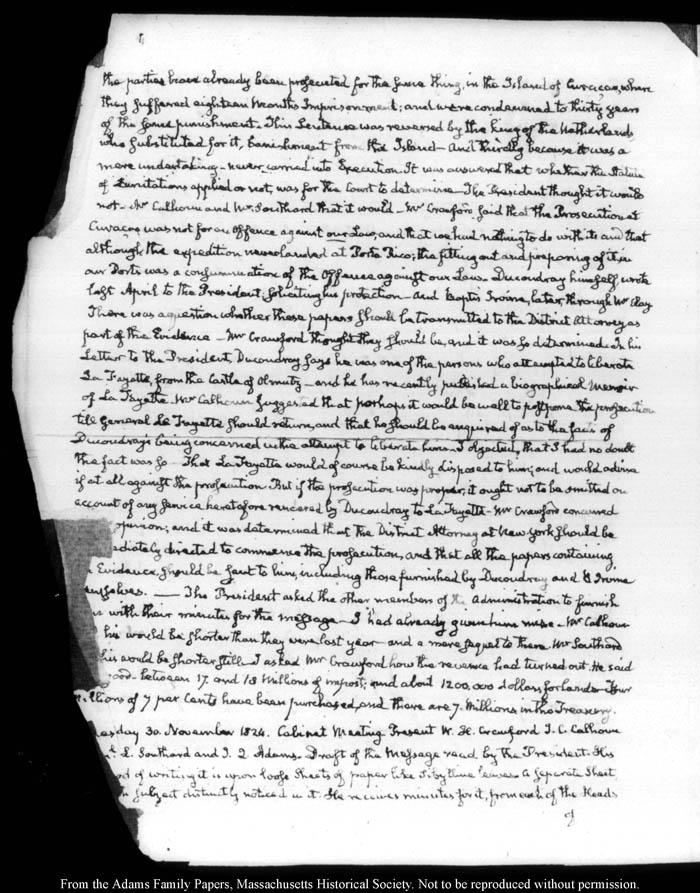 the parties have already been prosecuted for the same thing, in the Island of Curacao, where
they suffered eighteen Months Imprisonment; and were condemned to thirty years
of the same punishment. This Sentence was reversed by the King of the Netherlands
who substituted for it, banishment from the Island—And thirdly because it was a
mere undertaking—never carried into Execution. It was answered that whether the Statute
of Limitations applied or not, was for the Court to determine. The President thought it would
not—Mr Calhoun and Mr Southard that it would—Mr Crawford said that the Prosecution at
Curacao was not for an Offence against our Law, and that we had nothing to do with it and that
although the expedition never landed at Porto Rico; the fitting out and preparing of it in
our Ports was a consummation of the Offence against our Laws. Ducoudray himself wrote
last April to the President, soliciting his protection—and Baptis Irvine, later, through Mr Clay
There was a question whether these papers should be transmitted to the District Attorney as
part of the Evidence—Mr Crawford thought they should be, and it was so determined. In his
Letter to the President, Ducoudray says he was one of the persons who attempted to liberate
La Fayette, from the Castle of Olmutz—and he has recently published a biographical Memoir
of La Fayette. Mr Calhoun suggested that perhaps it would be well to postpone the prosecution
till General La Fayette should return, and that he should be enquired of as to the fact of
Ducoudray's being concerned in the attempt to liberate him. I objected, that I had no doubt
the fact was so—That La Fayette would of course be kindly disposed to him; and would advise
if at all against the prosecution. But if the prosecution was proper, it ought not to be omitted on
account of any service heretofore rendered by Ducoudray to La Fayette—Mr Crawford concurred
opinion; and it was determined that the District Attorney at New York should be
diately directed to commence the prosecution, and that all the papers containing
Evidence, should be sent to him, including those furnished by Ducoudray and B Irvine
mselves.—The President asked the other members of the Administration to furnish
with their minutes for the message—I had already given him mine—Mr Calhoun
his would be shorter than they were last year—and a mere sequel to them. Mr Southard
his would be shorter still—I asked Mr Crawford how the revenue had turned out. He said
good—between 17. and 18 Millions of impost; and about 1200,000 dollars for lands—Four
illions of 7 per Cents have been purchased, and there are 7. Millions in the Treasury.
esday 30. November 1824. Cabinet Meeting Present W. H. Crawford J. C. Calhoun
L. Southard and J. Q. Adams. Draft of the Message read by the President. His
od of writing it is upon loose Sheets of paper like Sibylline leaves. A separate Sheet
subject distinctly noticed in it. He receives minutes for it, from each of the Heads
of
From the Adams Family Papers, Massachusetts Historical Society. Not to be reproduced without permission.